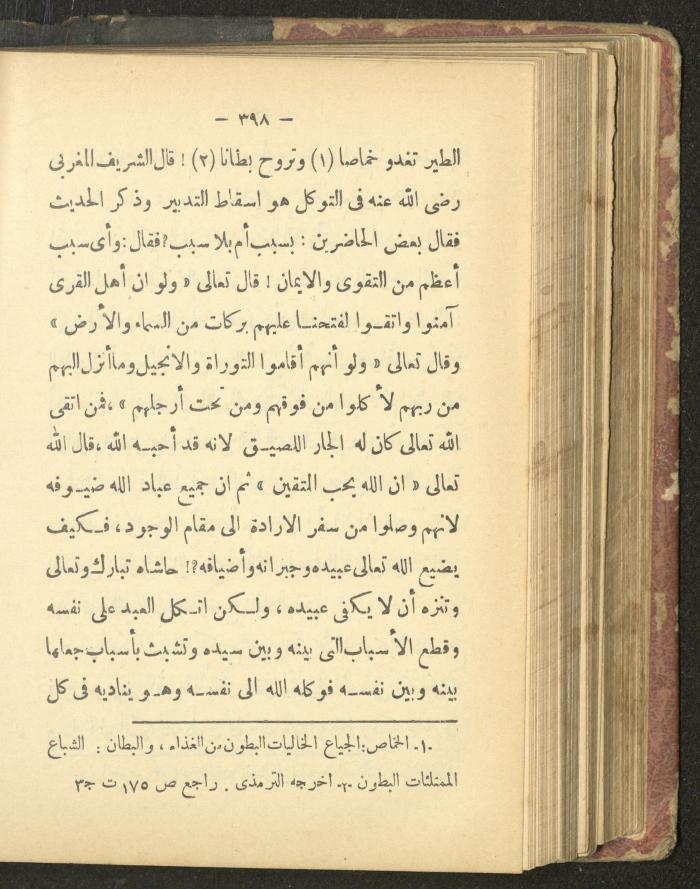 — ٣٩٨ —
الطير تغدو خماصا (١) وتروح بطانا (٢) ! قال الشريف المغربى
رضى الله عنه فى التوكل هو اسقاط التدبير وذكر الحديث
فقال بعض الحاضرين : بسبب أم بلا سبب؟ فقال : وأى سبب
أعظم من التقوى والايمان ! قال تعالى « ولو ان أهل القرى
آمنوا واتقوا لفتحنا عليهم بركات من السماء والأرض »
وقال تعالى « ولو أنهم أقاموا التوراة والانجيل وما أنزل اليهم
من ربهم لأكلوا من فوقهم ومن تحت أرجلهم » ، فمن اتقى
الله تعالى كان له الجار اللصيق لانه قد أحبه الله ، قال الله
تعالى « ان الله يحب المتقين » ثم ان جميع عباد الله ضيوفه
لانهم وصلوا من سفر الارادة الى مقام الوجود ، فكيف
يضيع الله تعالى عبيده وجيرانه وأضيافه؟! حاشاه تبارك وتعالى
وتنزه أن لا يكفى عبيده ، ولكن اتكل العبد على نفسه
وقطع الأسباب التى بينه وبين سيده وتشبث بأسباب جعلها
بينه وبين نفسه فوكله الله الى نفسه وهو يناديه فى كل
-١- الخماص : الجياع الخاليات البطون من الغذاء ، والبطان : الشباع
الممتلئات البطون -٢- اخرجه الترمذى . راجع ص ١٧٥ ت ج٣